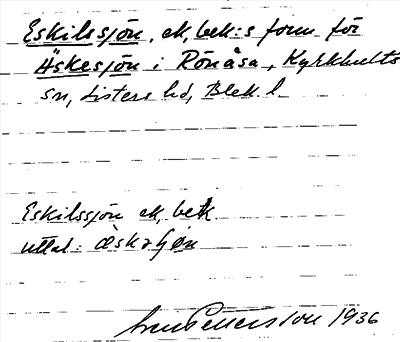 Eskilssjön, ek, bek:s form för
Äskesjön i Rönåsa, Kyrkhults
sn, Listers hd, Blek. l.
Eskilssjön ek, bek
uttal:
1936